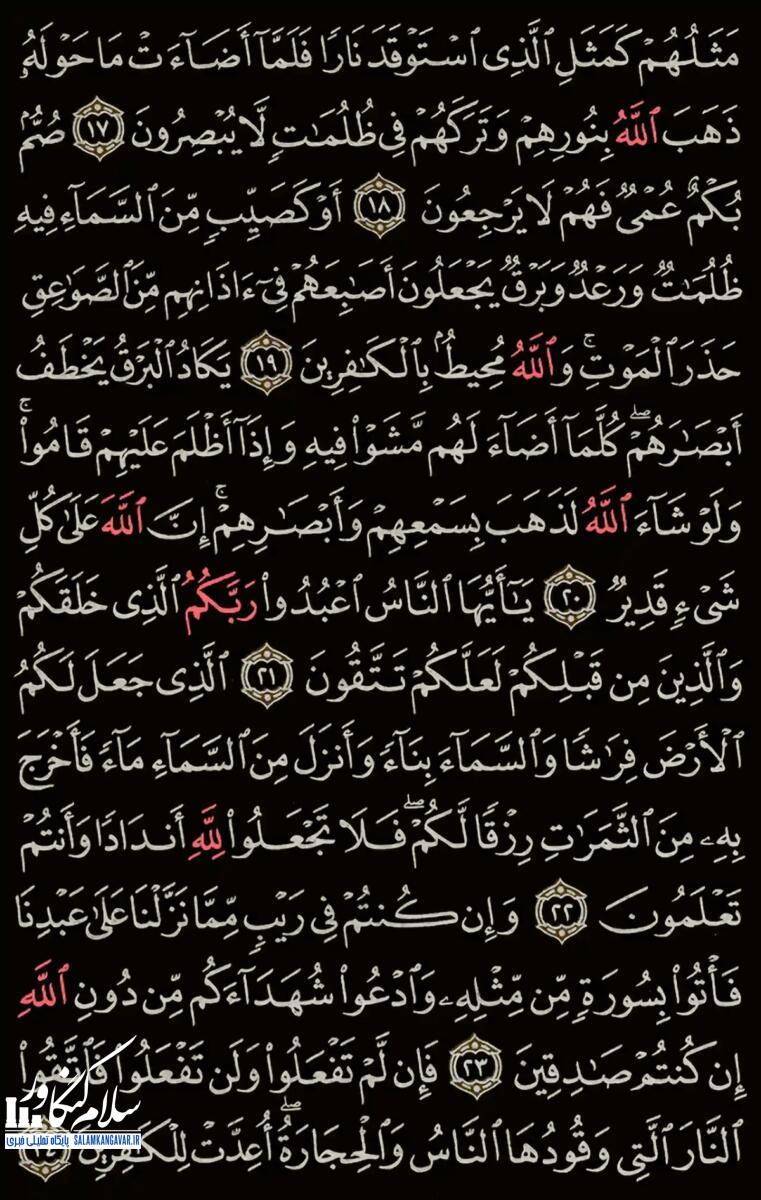 مَثَلُهُمْ كَمَثَلِ ٱلَّذِى ٱسْتَوْقَدَ نَارًا فَلَمَّآ أَضَآءَتْ مَا حَوْلَهُۥ
ذَهَبَ ٱللَّهُ بِنُورِهِمْ وَتَرَكَهُمْ فِى ظُلُمَٰتٍ لَّا يُبْصِرُونَ ١٧ صُمٌّۢ
بُكْمٌ عُمْىٌ فَهُمْ لَا يَرْجِعُونَ ١٨ أَوْ كَصَيِّبٍ مِّنَ ٱلسَّمَآءِ فِيهِ
ظُلُمَٰتٌ وَرَعْدٌ وَبَرْقٌ يَجْعَلُونَ أَصَٰبِعَهُمْ فِىٓ ءَاذَانِهِم مِّنَ ٱلصَّوَٰعِقِ
حَذَرَ ٱلْمَوْتِ ۚ وَٱللَّهُ مُحِيطٌۢ بِٱلْكَٰفِرِينَ ١٩ يَكَادُ ٱلْبَرْقُ يَخْطَفُ
أَبْصَٰرَهُمْ ۖ كُلَّمَآ أَضَآءَ لَهُم مَّشَوْا۟ فِيهِ وَإِذَآ أَظْلَمَ عَلَيْهِمْ قَامُوا۟ ۚ
وَلَوْ شَآءَ ٱللَّهُ لَذَهَبَ بِسَمْعِهِمْ وَأَبْصَٰرِهِمْ ۚ إِنَّ ٱللَّهَ عَلَىٰ كُلِّ
شَىْءٍ قَدِيرٌ ٢٠ يَٰٓأَيُّهَا ٱلنَّاسُ ٱعْبُدُوا۟ رَبَّكُمُ ٱلَّذِى خَلَقَكُمْ
وَٱلَّذِينَ مِن قَبْلِكُمْ لَعَلَّكُمْ تَتَّقُونَ ٢١ ٱلَّذِى جَعَلَ لَكُمُ
ٱلْأَرْضَ فِرَٰشًا وَٱلسَّمَآءَ بِنَآءً وَأَنزَلَ مِنَ ٱلسَّمَآءِ مَآءً فَأَخْرَجَ
بِهِۦ مِنَ ٱلثَّمَرَٰتِ رِزْقًا لَّكُمْ ۖ فَلَا تَجْعَلُوا۟ لِلَّهِ أَندَادًا وَأَنتُمْ
تَعْلَمُونَ ٢٢ وَإِن كُنتُمْ فِى رَيْبٍ مِّمَّا نَزَّلْنَا عَلَىٰ عَبْدِنَا
فَأْتُوا۟ بِسُورَةٍ مِّن مِّثْلِهِۦ وَٱدْعُوا۟ شُهَدَآءَكُم مِّن دُونِ ٱللَّهِ
إِن كُنتُمْ صَٰدِقِينَ ٢٣ فَإِن لَّمْ تَفْعَلُوا۟ وَلَن تَفْعَلُوا۟ فَٱتَّقُوا۟
ٱلنَّارَ ٱلَّتِى وَقُودُهَا ٱلنَّاسُ وَٱلْحِجَارَةُ ۖ أُعِدَّتْ لِلْكَٰفِرِينَ ٢٤
سلام کنگاور
پایگاه تحلیلی خبری SALAMKANGAVAR.IR